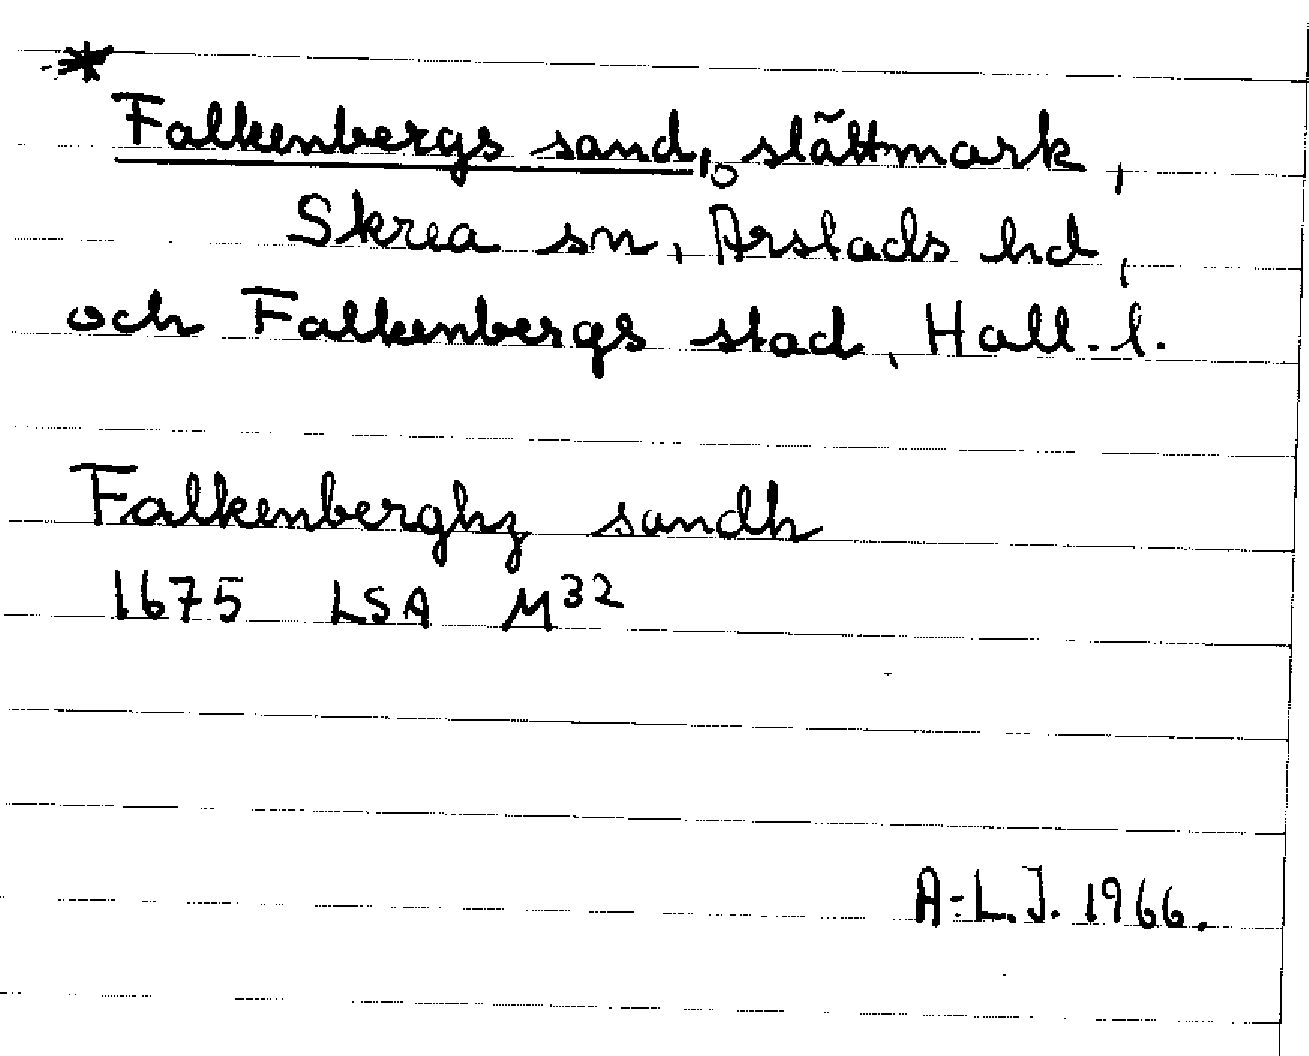 *
Falkenbergs sand, slättmark,
Skrea sn, Årstads hd,
och Falkenbergs stad, Hall. l.
Falkenberghz sandh
1675 LSA M32
A-L.J. 1966.